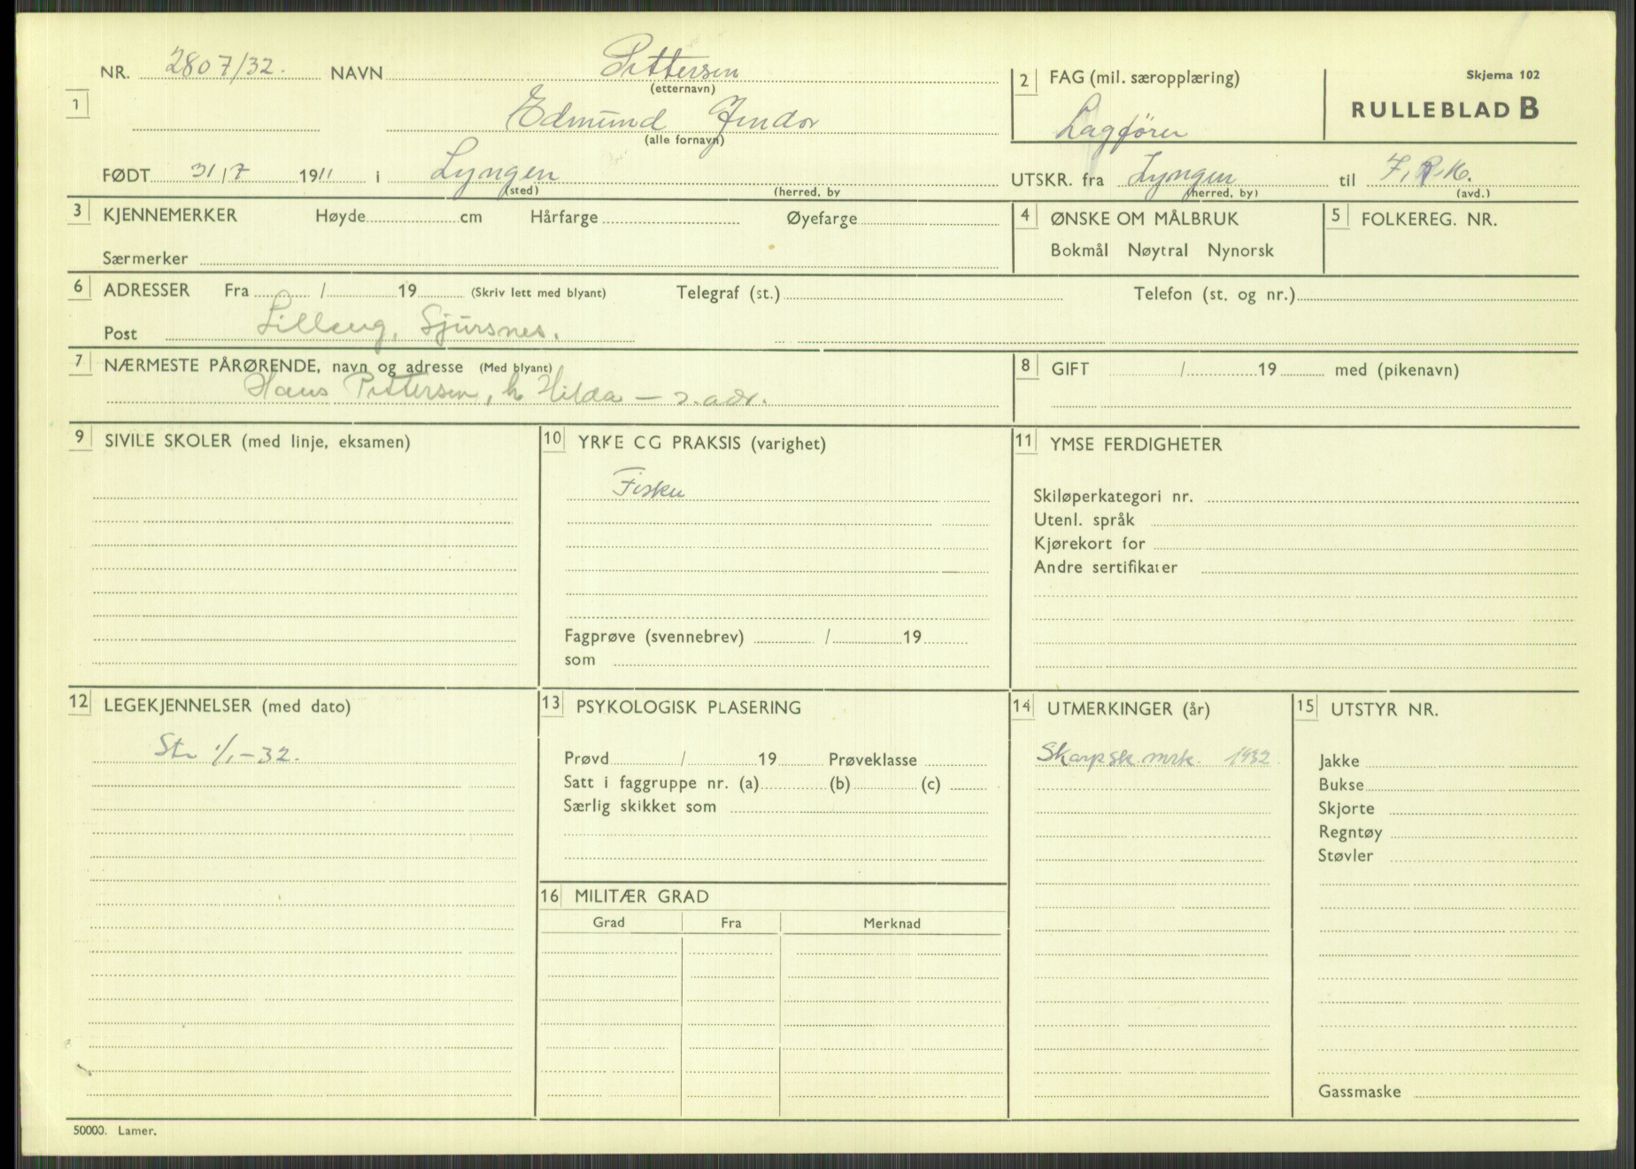 NR. 2807/32. NAVN Pettersen
(etternavn)
2 FAG (mil. særopplæring)
Skjema 102
RULLEBLAD B
1
Edmund Jindor
(alle fornavn)
Lagfører
FØDT 31/7 1911 i Lyngen
(sted) (herred. by
UTSKR. fra Lyngen til F.R.16.
(herred, by) (avd.)
3 KJENNEMERKER Høyde cm Hårfarge Øyefarge
Særmerker
4 ØNSKE OM MÅLBRUK
Bokmål Nøytral Nynorsk
5 FOLKEREG. NR.
6 ADRESSER Fra / 19 (Skriv lett med blyant) Telegraf (st.) Telefon (st. og nr.)
Post Lilleng, Sjursnes.
7 NÆRMESTE PÅRØRENDE, navn og adresse (Med blyant)
Hans Pettersen, h Hilda — s. adr.
8 GIFT / 19 med (pikenavn)
9 SIVILE SKOLER (med linje, eksamen)
10 YRKE CG PRAKSIS (varighet)
Fisker
Fagprøve (svennebrev) / 19
som
11 YMSE FERDIGHETER
Skiløperkategori nr.
Utenl. språk
Kjørekort for
Andre sertifikater
12 LEGEKJENNELSER (med dato)
Str 1/1-32.
13 PSYKOLOGISK PLASERING
Prøvd / 19 Prøveklasse
Satt i faggruppe nr. (a) (b) (c)
Særlig skikket som
14 UTMERKINGER (år)
Skarpsk mrk. 1932
15 UTSTYR NR.
Jakke
Bukse
Skjorte
Regntøy
Støvler
Gassmaske
16 MILITÆR GRAD
Grad Fra Merknad
50000. Lamer.